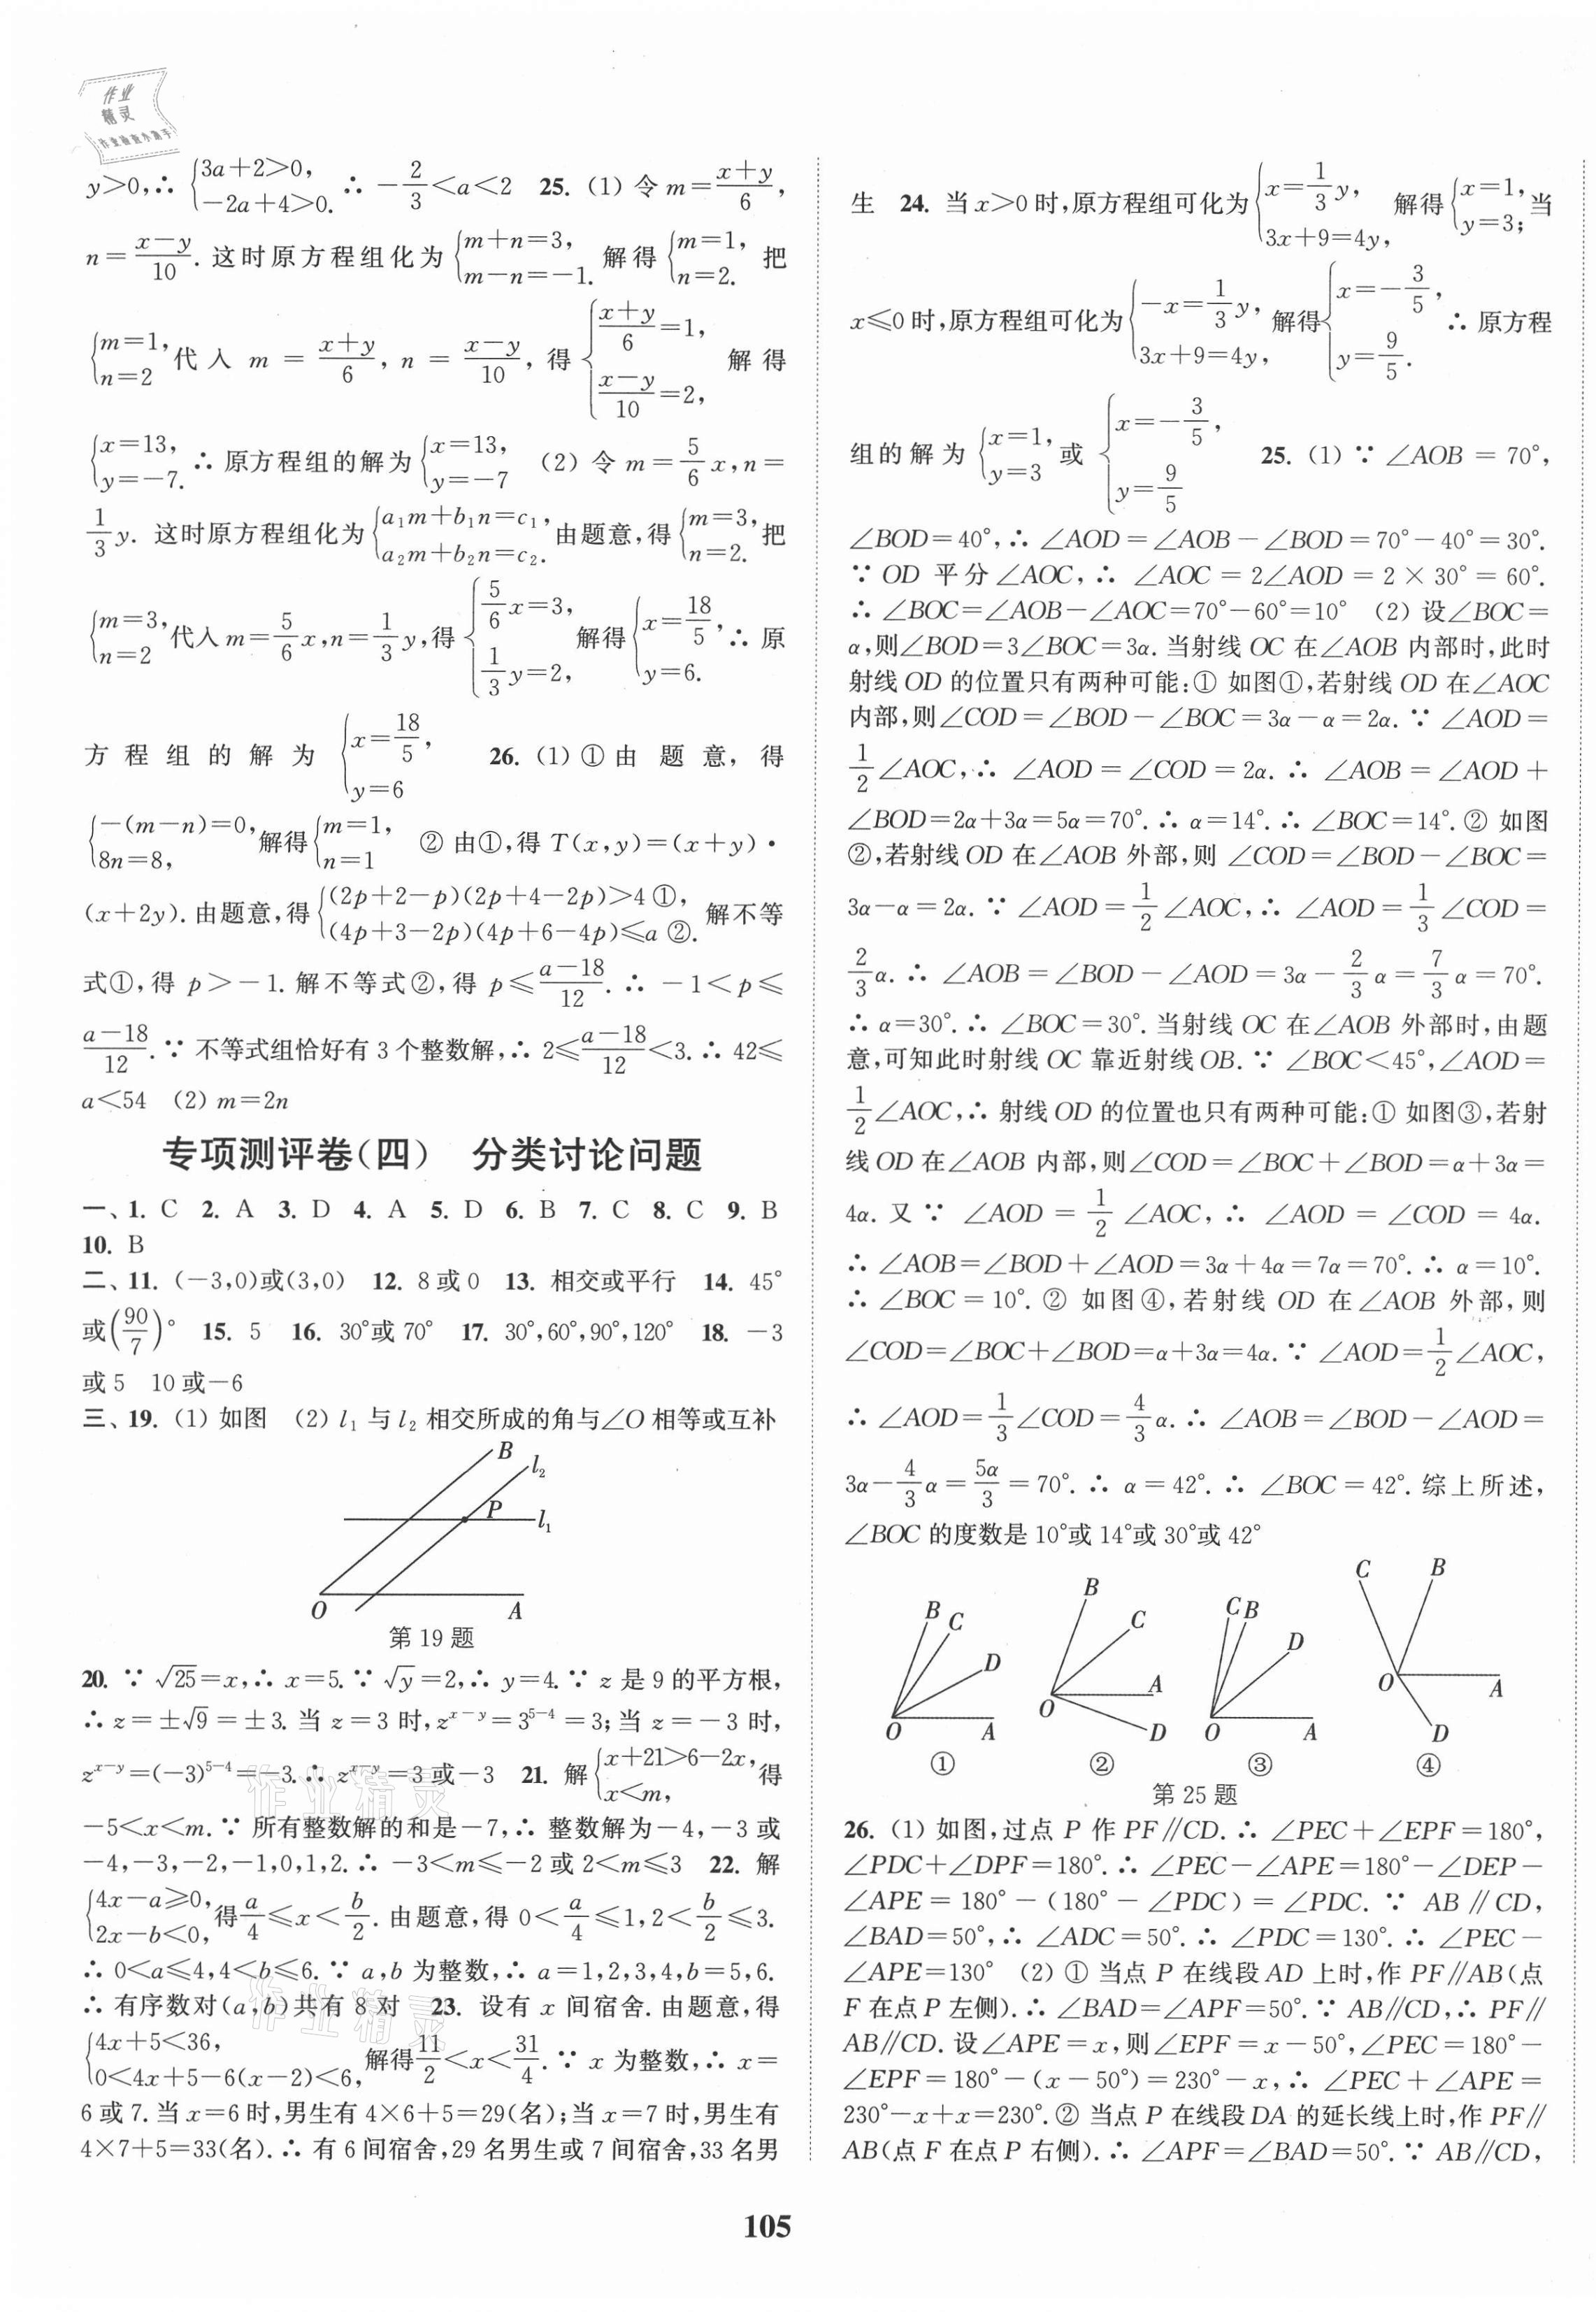 作业
精灵
作业检查小助手
y>0,∴ {3a+2>0, −2a+4>0. ∴ −2/3<a<2 25. (1) 令 m=(x+y)/6,
n=(x−y)/10. 这时原方程组化为 {m+n=3, m−n=−1. 解得 {m=1, n=2. 把
{m=1, n=2 代入 m=(x+y)/6, n=(x−y)/10, 得 {(x+y)/6=1, (x−y)/10=2, 解得
{x=13, y=−7. ∴ 原方程组的解为 {x=13, y=−7 (2) 令 m=5/6 x,n=
1/3 y. 这时原方程组化为 {a₁m+b₁n=c₁, a₂m+b₂n=c₂. 由题意,得 {m=3, n=2. 把
{m=3, n=2 代入 m=5/6 x,n=1/3 y,得 {5/6 x=3, 1/3 y=2, 解得 {x=18/5, y=6. ∴ 原
方程组的解为 {x=18/5, y=6 26. (1) ①由题意,得
{−(m−n)=0, 8n=8, 解得 {m=1, n=1 ② 由①,得 T(x,y)=(x+y)·
(x+2y). 由题意,得 {(2p+2−p)(2p+4−2p)>4 ①, (4p+3−2p)(4p+6−4p)≤a ②. 解不等
式①,得 p>−1. 解不等式②,得 p≤(a−18)/12. ∴ −1<p≤
(a−18)/12. ∵ 不等式组恰好有 3 个整数解,∴ 2≤(a−18)/12<3. ∴ 42≤
a<54 (2) m=2n
专项测评卷(四) 分类讨论问题
一、1. C 2. A 3. D 4. A 5. D 6. B 7. C 8. C 9. B
10. B
二、11. (−3,0)或(3,0) 12. 8或0 13. 相交或平行 14. 45°
或(90/7)° 15. 5 16. 30°或 70° 17. 30°,60°,90°,120° 18. −3
或 5 10 或−6
三、19. (1) 如图 (2) l₁ 与 l₂ 相交所成的角与∠O 相等或互补
B
l₂
P
l₁
O A
第 19 题
20. ∵ √25=x,∴ x=5. ∵ √y=2,∴ y=4. ∵ z 是 9 的平方根,
∴ z=±√9=±3. 当 z=3 时,z^(x−y)=3^(5−4)=3;当 z=−3 时,
z^(x−y)=(−3)^(5−4)=−3. ∴ z^(x−y)=3 或−3 21. 解 {x+21>6−2x, x<m, 得
−5<x<m. ∵ 所有整数解的和是−7,∴ 整数解为−4,−3 或
−4,−3,−2,−1,0,1,2. ∴ −3<m≤−2 或 2<m≤3 22. 解
{4x−a≥0, 2x−b<0, 得 a/4≤x<b/2. 由题意,得 0<a/4≤1,2<b/2≤3.
∴ 0<a≤4,4<b≤6. ∵ a,b 为整数,∴ a=1,2,3,4,b=5,6.
∴ 有序数对(a,b)共有 8 对 23. 设有 x 间宿舍. 由题意,得
{4x+5<36, 0<4x+5−6(x−2)<6, 解得 11/2<x<31/4. ∵ x 为整数,∴ x=
6 或 7. 当 x=6 时,男生有 4×6+5=29(名);当 x=7 时,男生有
4×7+5=33(名). ∴ 有 6 间宿舍,29 名男生或 7 间宿舍,33 名男
生 24. 当 x>0 时,原方程组可化为 {x=1/3 y, 3x+9=4y, 解得 {x=1, y=3; 当
x≤0 时,原方程组可化为 {−x=1/3 y, 3x+9=4y, 解得 {x=−3/5, y=9/5. ∴ 原方程
组的解为 {x=1, y=3 或 {x=−3/5, y=9/5 25. (1) ∵ ∠AOB=70°,
∠BOD=40°,∴ ∠AOD=∠AOB−∠BOD=70°−40°=30°.
∵ OD 平分∠AOC,∴ ∠AOC=2∠AOD=2×30°=60°.
∴ ∠BOC=∠AOB−∠AOC=70°−60°=10° (2) 设∠BOC=
α,则∠BOD=3∠BOC=3α. 当射线 OC 在∠AOB 内部时,此时
射线 OD 的位置只有两种可能:① 如图①,若射线 OD 在∠AOC
内部,则∠COD=∠BOD−∠BOC=3α−α=2α. ∵ ∠AOD=
1/2∠AOC,∴ ∠AOD=∠COD=2α. ∴ ∠AOB=∠AOD+
∠BOD=2α+3α=5α=70°. ∴ α=14°. ∴ ∠BOC=14°. ② 如图
②,若射线 OD 在∠AOB 外部,则 ∠COD=∠BOD−∠BOC=
3α−α=2α. ∵ ∠AOD=1/2∠AOC,∴ ∠AOD=1/3∠COD=
2/3 α. ∴ ∠AOB=∠BOD−∠AOD=3α−2/3 α=7/3 α=70°.
∴ α=30°. ∴ ∠BOC=30°. 当射线 OC 在∠AOB 外部时,由题
意,可知此时射线 OC 靠近射线OB. ∵ ∠BOC<45°,∠AOD=
1/2∠AOC,∴ 射线 OD 的位置也只有两种可能:① 如图③,若射
线 OD 在∠AOB 内部,则∠COD=∠BOC+∠BOD=α+3α=
4α. 又 ∵ ∠AOD=1/2∠AOC,∴ ∠AOD=∠COD=4α.
∴ ∠AOB=∠BOD+∠AOD=3α+4α=7α=70°. ∴ α=10°.
∴ ∠BOC=10°. ② 如图④,若射线 OD 在∠AOB 外部,则
∠COD=∠BOC+∠BOD=α+3α=4α. ∵ ∠AOD=1/2∠AOC,
∴ ∠AOD=1/3∠COD=4/3 α. ∴ ∠AOB=∠BOD−∠AOD=
3α−4/3 α=5α/3=70°. ∴ α=42°. ∴ ∠BOC=42°. 综上所述,
∠BOC 的度数是 10°或 14°或 30°或 42°
B C D O A
①
B C A O D
②
C B D O A
③
C B O A D
④
第 25 题
26. (1) 如图,过点 P 作 PF∥CD. ∴ ∠PEC+∠EPF=180°,
∠PDC+∠DPF=180°. ∴ ∠PEC−∠APE=180°−∠DEP−
∠APE=180°−(180°−∠PDC)=∠PDC. ∵ AB∥CD,
∠BAD=50°,∴ ∠ADC=50°. ∴ ∠PDC=130°. ∴ ∠PEC−
∠APE=130° (2) ① 当点 P 在线段 AD 上时,作 PF∥AB(点
F 在点 P 左侧). ∴ ∠BAD=∠APF=50°. ∵ AB∥CD,∴ PF∥
AB∥CD. 设∠APE=x,则∠EPF=x−50°,∠PEC=180°−
∠EPF=180°−(x−50°)=230°−x,∴ ∠PEC+∠APE=
230°−x+x=230°. ② 当点 P 在线段 DA 的延长线上时,作 PF∥
AB(点 F 在点 P 右侧). ∴ ∠APF=∠BAD=50°. ∵ AB∥CD,
作业精灵
作业精灵
105